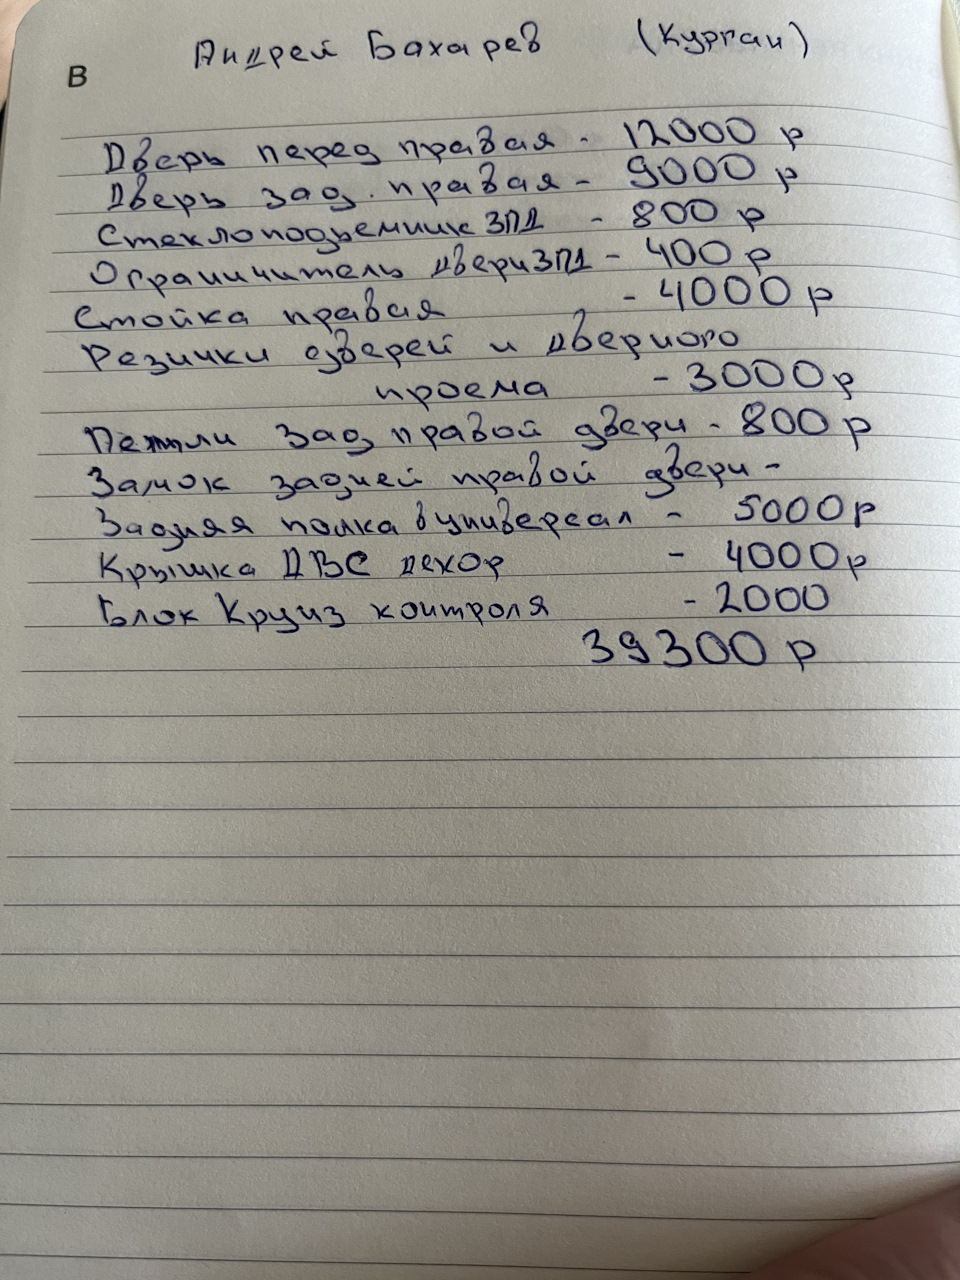 Андрей Бахарев (Курган)
В
Дверь перед правая - 12000 р
Дверь зад. правая - 9000 р
Стеклоподъемник ЗПД - 800 р
Ограничитель двери ЗПД - 400 р
Стойка правая - 4000 р
Резинки дверей и дверного
проема - 3000 р
Петли зад правой двери - 800 р
Замок задней правой двери -
Задняя полка в универсал - 5000 р
Крышка ДВС декор - 4000 р
Блок Круиз контроля - 2000
39300 р